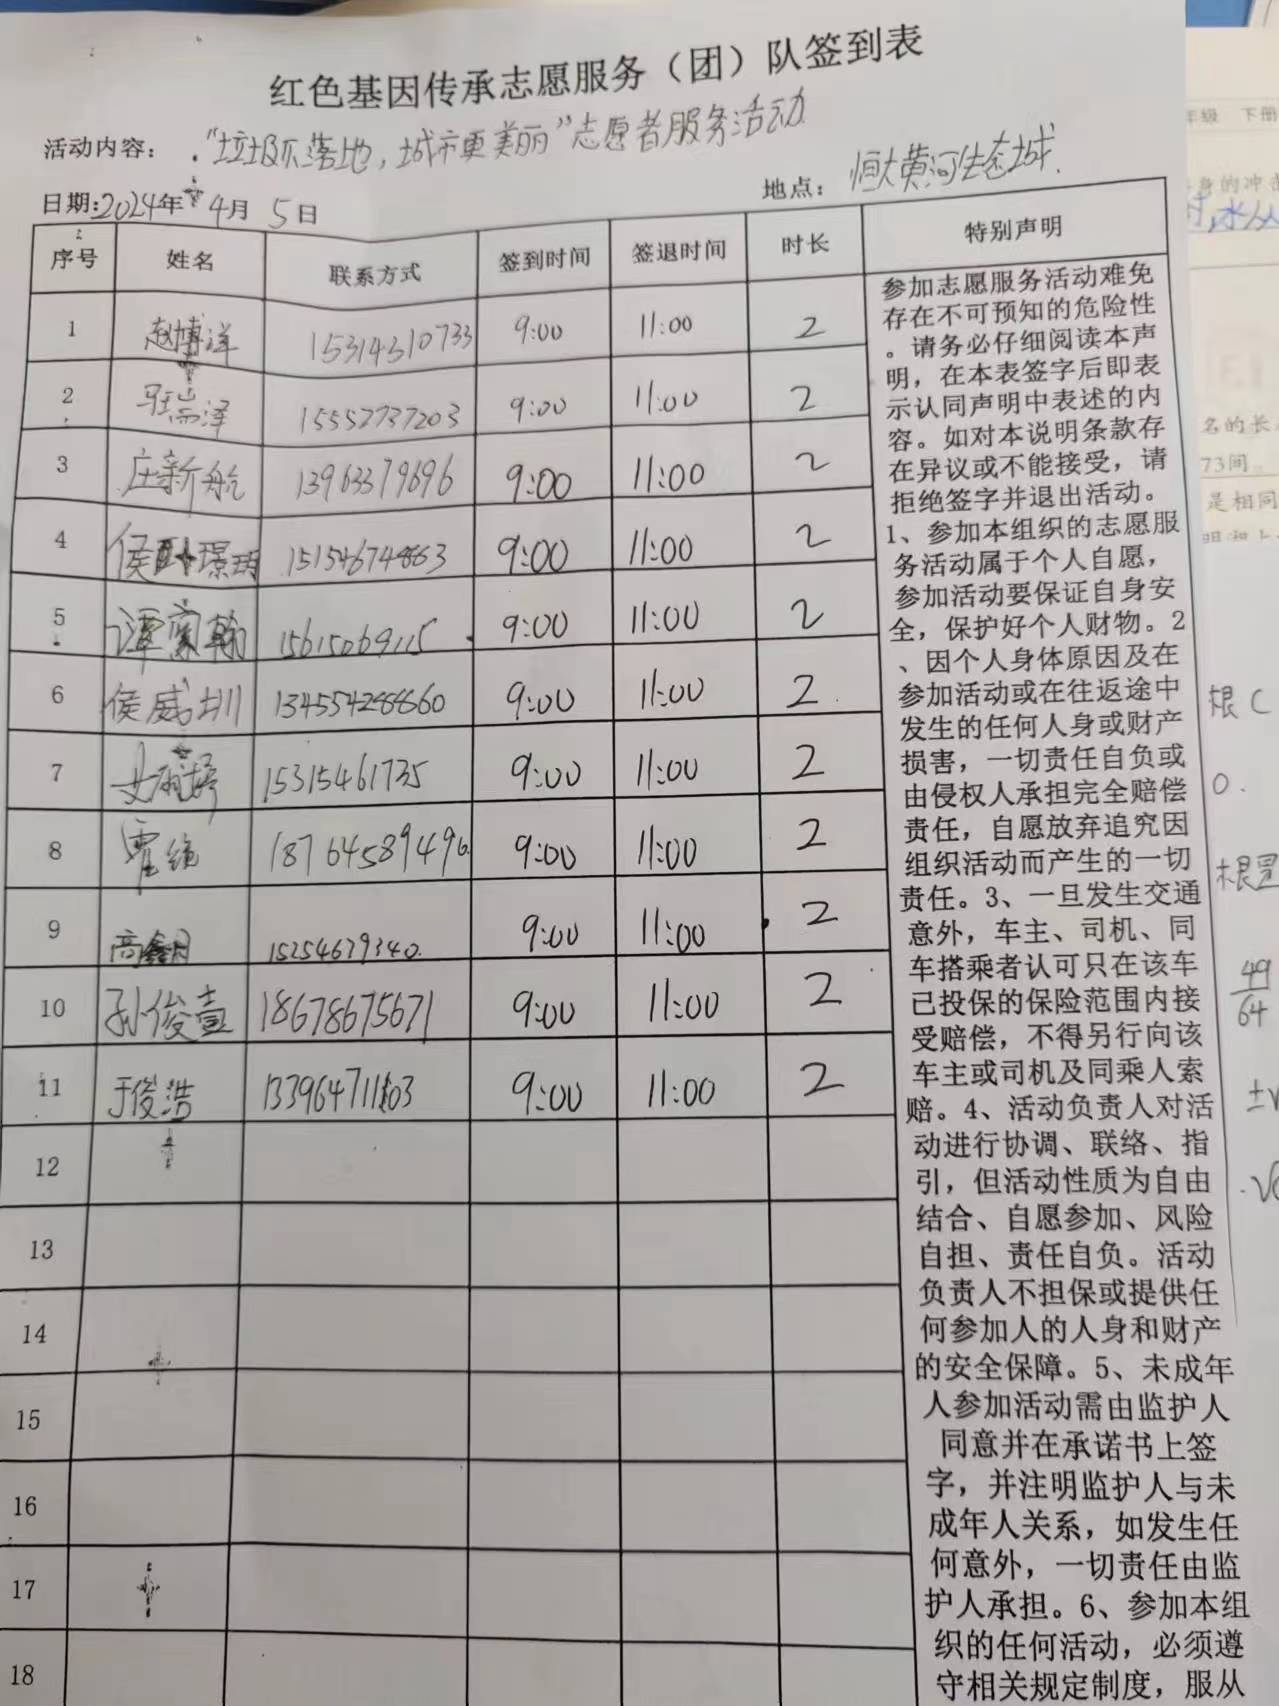 红色基因传承志愿服务（团）队签到表
活动内容： “垃圾不落地，城市更美丽”志愿者服务活动
日期:2024年 4月 5日 地点： 恒大黄河生态城
序号 姓名 联系方式 签到时间 签退时间 时长 特别声明
1 赵博洋 15314510733 9:00 11:00 2
2 瑞泽 15552737203 9:00 11:00 2
3 庄新航 13963379696 9:00 11:00 2
4 侯璟玥 15154674863 9:00 11:00 2
5 谭家翰 15615069115 9:00 11:00 2
6 侯威圳 13455428860 9:00 11:00 2
7 15315461735 9:00 11:00 2
8 霍纯 18764589496 9:00 11:00 2
9 高鑫月 15254679340 9:00 11:00 2
10 孙俊壹 18678675671 9:00 11:00 2
11 于俊浩 13396471103 9:00 11:00 2
12
13
14
15
16
17
18
参加志愿服务活动难免
存在不可预知的危险性
。请务必仔细阅读本声
明，在本表签字后即表
示认同声明中表述的内
容。如对本说明条款存
在异议或不能接受，请
拒绝签字并退出活动。
1、参加本组织的志愿服
务活动属于个人自愿，
参加活动要保证自身安
全，保护好个人财物。2
、因个人身体原因及在
参加活动或在往返途中
发生的任何人身或财产
损害，一切责任自负或
由侵权人承担完全赔偿
责任，自愿放弃追究因
组织活动而产生的一切
责任。3、一旦发生交通
意外，车主、司机、同
车搭乘者认可只在该车
已投保的保险范围内接
受赔偿，不得另行向该
车主或司机及同乘人索
赔。4、活动负责人对活
动进行协调、联络、指
引，但活动性质为自由
结合、自愿参加、风险
自担、责任自负。活动
负责人不担保或提供任
何参加人的人身和财产
的安全保障。5、未成年
人参加活动需由监护人
同意并在承诺书上签
字，并注明监护人与未
成年人关系，如发生任
何意外，一切责任由监
护人承担。6、参加本组
织的任何活动，必须遵
守相关规定制度，服从
年级 下册
身的冲击
名的长
73间
是相同
根C
0.
根是
49
64